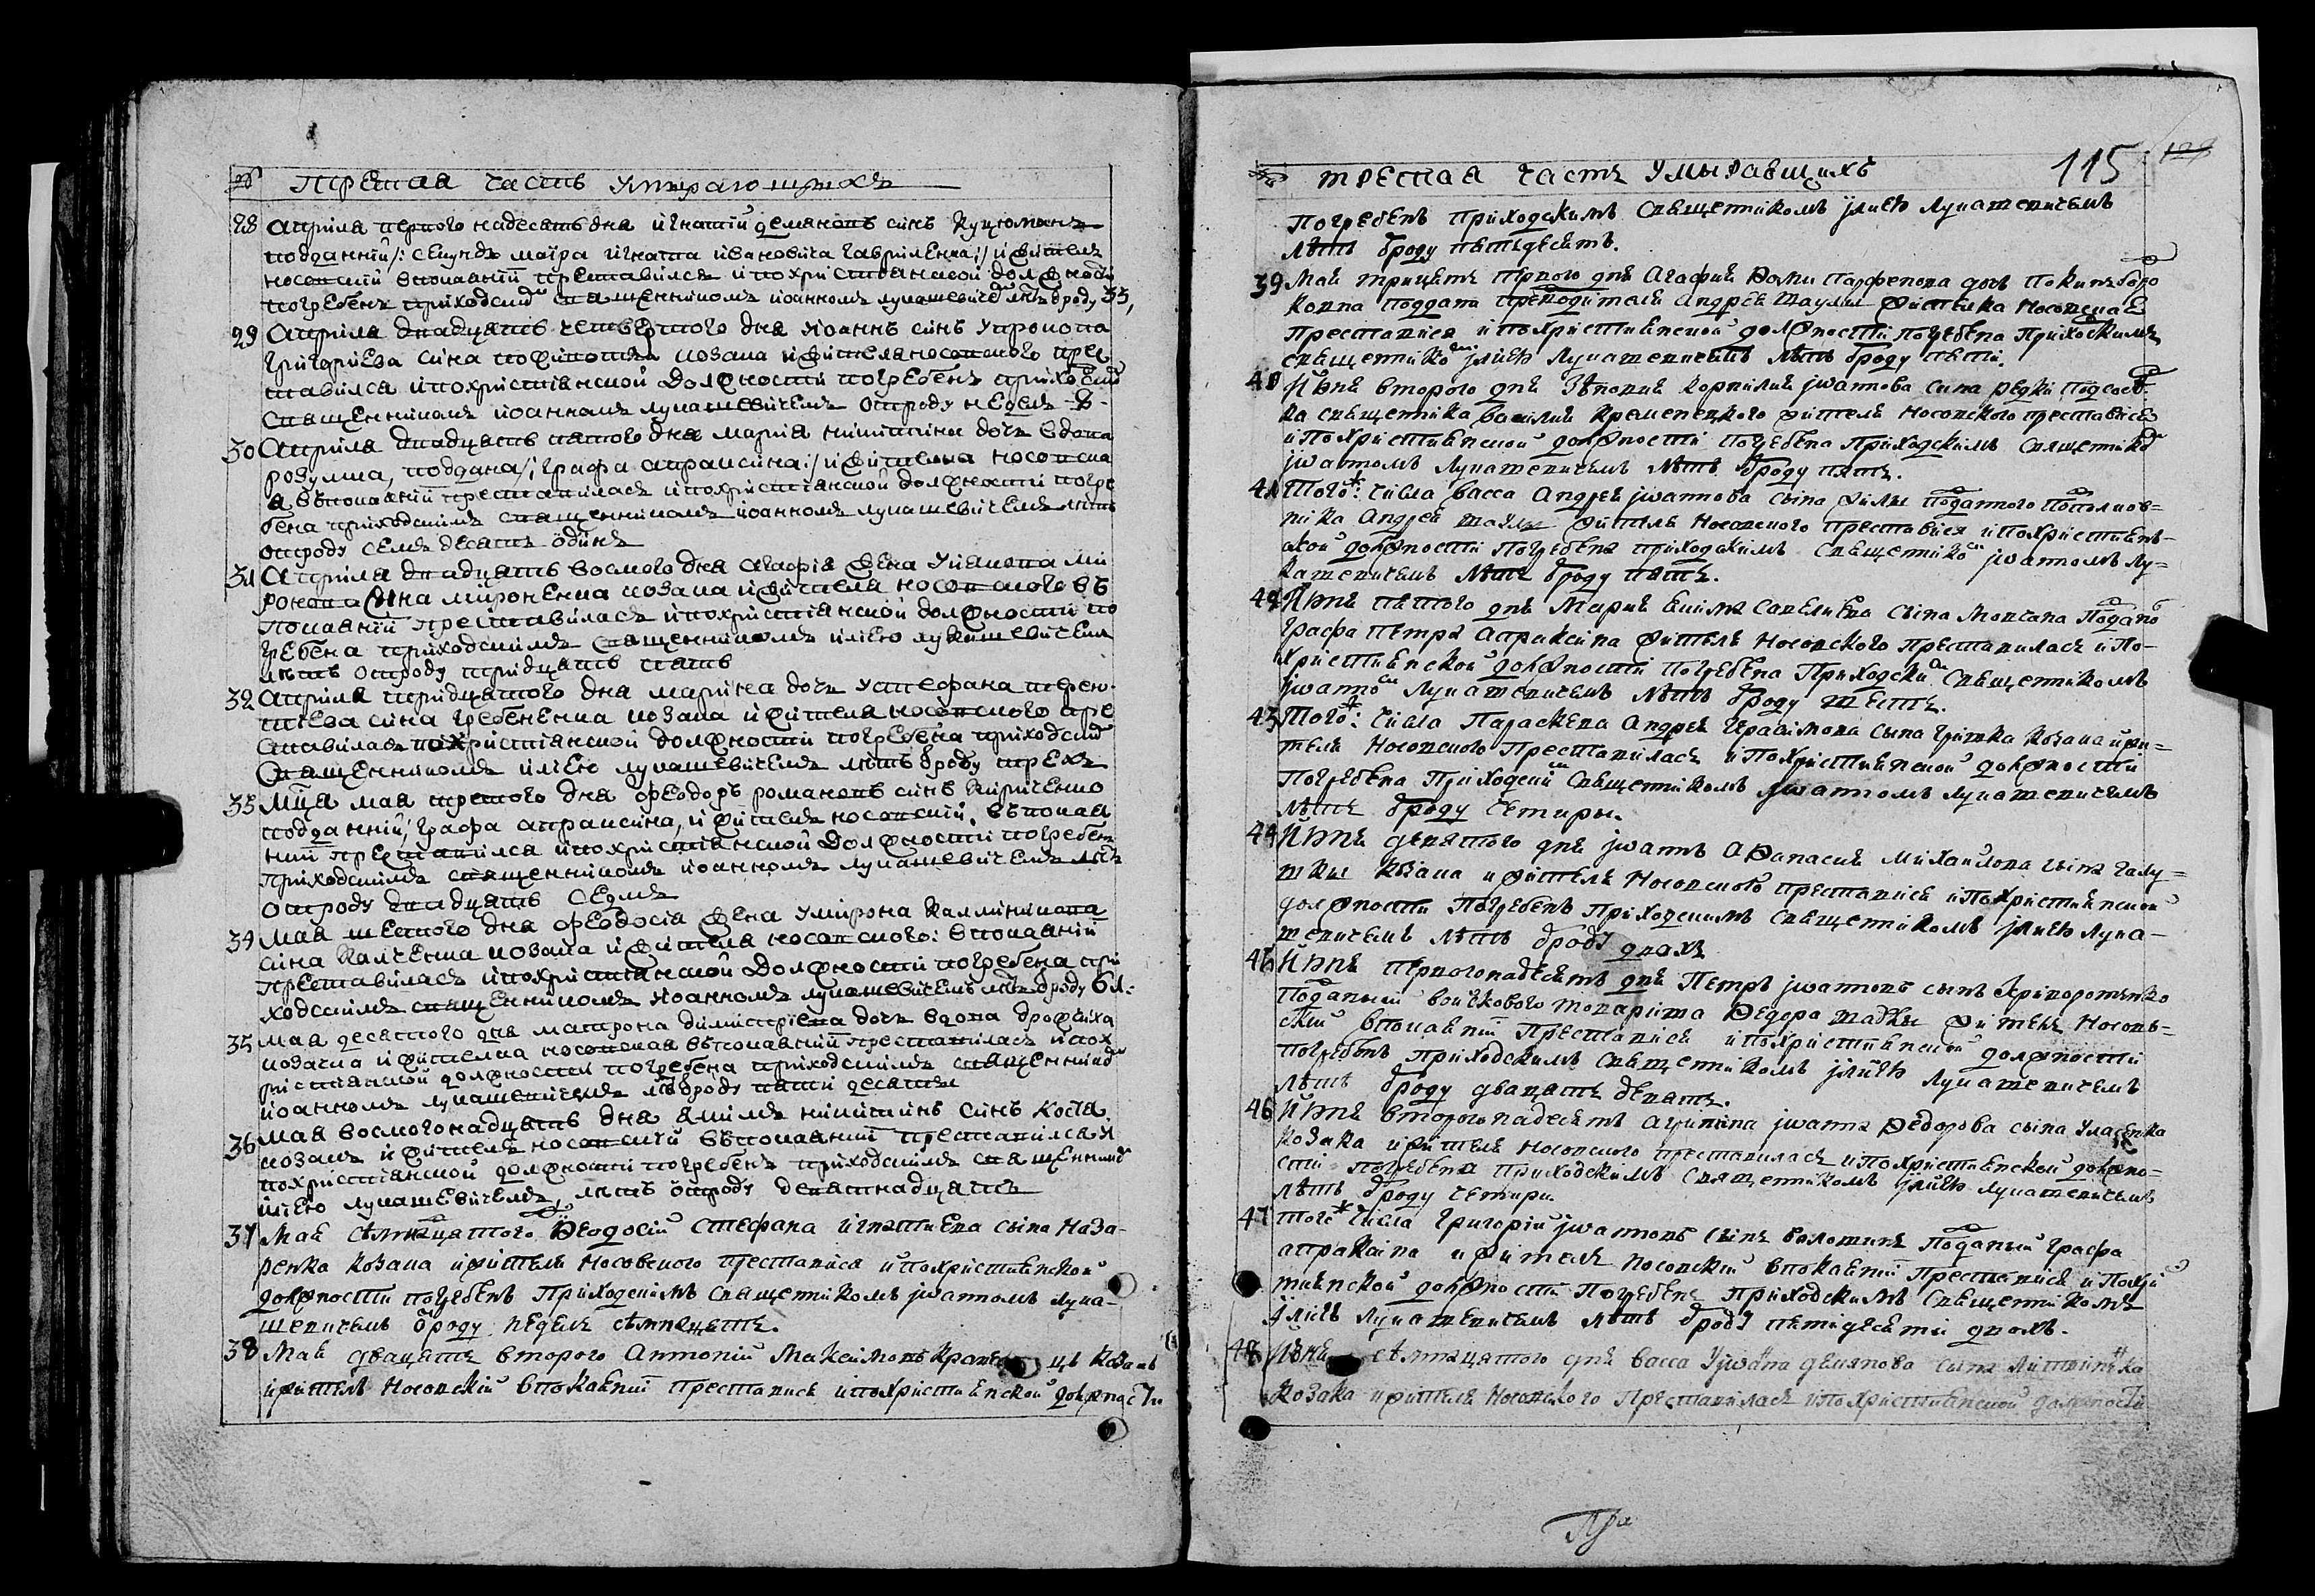 третая часть умирающихъ
28 априля первого надесать дня игнатій демяновъ синъ куцюманъ
подданній/: секундъ маіора игната ивановича гаврїленка:/ и житель
носовский в покаянїй преставился и по християнской должности
погребенъ приходскимъ священникомъ иоанномъ лукашевичемъ лѣтъ ѿроду 35,
29 Априля двадцать четвертого дня иоаннъ синъ у прокопа
григориева сина козака и жителя носовского прес
тавился и по християнской должности погребенъ приходскимъ
священникомъ иоанномъ лукашевичемъ отроду недель
30 Априля двадцать пятого дня мария никитина дочь вдова
розумка, поддана/: графа апраксина:/ и жителка носовска
я въ покаянїй преставилась и по християнской должности погре
бена приходскимъ священникомъ иоанномъ лукашевичемъ лѣтъ
отроду семъ десать одинъ
31 Априля двадцать восмого дня агафия жена у иякова ми
рона сина мироненка козака и жителя носовского въ
покаянїй преставилась и по християнской должности по
гребена приходскимъ священникомъ илиею лукашевичемъ
лѣтъ отроду тридцать пять
32 априля тридцатого дня маринa дочь у стефана терен
тиева сина гребененка козака и жителя носовского пре
ставилась по християнской должности погребена приходским
священникомъ илиею лукашевичемъ лѣтъ ѿроду трехъ
33 Мца мая третого дня феодоръ романовъ синъ кириченко
подданній/ графа апраксина, и житель носовскїй, въ покая
ний преставился и по християнской должности погребенъ
приходскимъ священникомъ иоанномъ лукашевичемъ лѣтъ
отроду двадцать седмъ
34 Мая шестого дня феодосїа жена у мирона калиникова
сина калченка козака и жителя носовского: в покаянїй
преставилась и по християнской должности погребена при
ходскимъ священникомъ иоанномъ лукашевичемъ лѣтъ ѿроду 61:
35 Мая десятого дня матрона димитрїева дочь вдова дрожчиха
козачка и жителка носовская въ покаянїй преставилась и по х
ристиянской должности погребена приходскимъ священником
иоанномъ лукашевичемъ лѣтъ ѿроду пяти десять
36 Мая восмогонадцать дня якимъ никитинъ синъ
козакъ и житель носовскїй въ покаянїй преставился и
по християнской должности погребенъ приходскимъ священником
илїею лукашевичемъ, лѣтъ отроду девятнадцать
37 Мая сѣмнацятого Феодосій стефана игнатиева сына наза-
ренка козака и жителя носовского преставися и по християнской
должности погребенъ приходскимъ священникомъ иоанномъ лука-
шевичемъ ѿроду недель сѣмнацать.
38 Мая двацать второго Антоній Максимовъ козакъ
и житель носовскій в покаяній преставися и по християнской должности

третая часть умирающихъ 115
погребенъ приходскимъ священникомъ илиею лукашевичемъ
лѣтъ ѿроду пятьдесятъ.
39 Мая трицать первого дня Агафия Фомы Парфенова дочь
поддан андрея шаулы жителка носовская
преставися и по християнской должности погребена приходскимъ
священнико илиею лукашевичемъ лѣтъ ѿроду пяти.
40 Июня второго дня Зѣновия корнилия иоаннова сина редки подсосѣд
ка священика василия кременецкого жителя носовского преставися
и по християнской должности погребена приходскимъ священико
иоанномъ лукашевичемъ лѣтъ ѿроду пять.
41 Того ж: числа васса андрея иоаннова сына филы поданого полков-
ника андрея шаулы жителя носовского преставися и по християн-
ской должности погребена приходскимъ священнико иоанномъ лу-
кашевичемъ лѣтъ ѿроду пять.
42 Июня пятого дня Мария екима савелиева сына мовчана подано
графа петра апраксина жителя носовского преставилась и по
християнской должности погребена приходски священникомъ
иоанно лукашевичемъ лѣтъ ѿроду шесть.
43 Того ж: числа параскева андрея герасимова сына гришка козака и жи-
теля носовского преставилась и по християнской должности
погребена приходски священникомъ иоанномъ лукашевичемъ
лѣтъ ѿроду четыри.
44 Июня девятого дня иоаннъ афанасия михайлова сына галу-
шки козака и жителя носовского преставися и по християнской
должности погребенъ приходскимъ священникомъ илиею лука-
шевичемъ лѣтъ ѿроду двохъ
45 Июня первогонадесять дня Петръ иоанновъ сынъ криворотенко
поданий войскового товариша федора шадки житель носов-
ский в покаяній преставися и по християнской должности
погребенъ приходскимъ священникомъ илиею лукашевичемъ
лѣтъ ѿроду двацать девать.
46 Июня второгонадесять агрипина иоанна федорова сына уласенка
козака и жителя носовского преставилась и по християнской должно-
сти погребена приходскимъ священникомъ илиею лукашевичемъ
лѣтъ ѿроду четири.
47 Того ж числа григорій иоанновъ сынъ волошинъ поданый графа
апраксина и житель носовскій в покаяній преставися и по хри
тиянской должности погребенъ приходскимъ священникомъ
илиею лукашевичемъ лѣтъ ѿроду пятидесяти двохъ.
48 Июня сѣмнацятого дня васса у ивана демянова сына литвиненка
козака и жителя носовского преставилась и по християнской должности
При